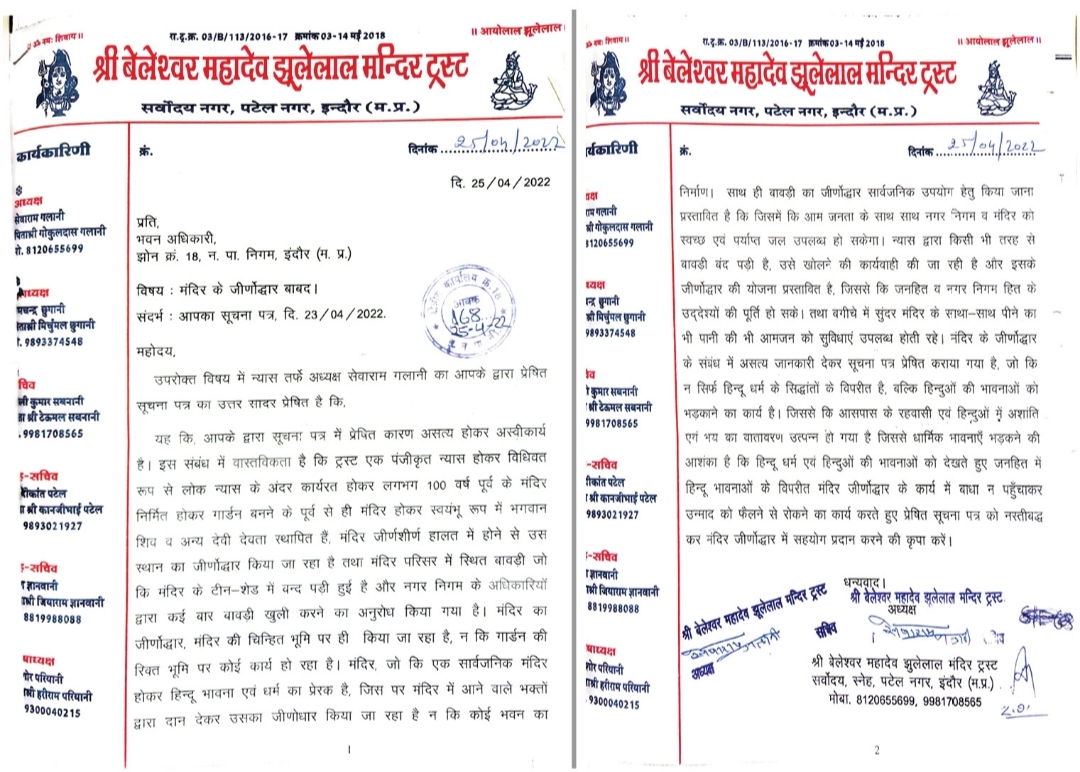 ॐ नमः शिवाय॥
रा.टू.क्र. 03/B/113/2016-17 क्रमांक 03-14 मई 2018
॥ आयोलाल झूलेलाल॥
श्री बेलेश्वर महादेव झूलेलाल मन्दिर ट्रस्ट
सर्वोदय नगर, पटेल नगर, इन्दौर (म.प्र.)
कार्यकारिणी
अध्यक्ष
सेवाराम गलानी
पिताश्री गोकुलदास गलानी
मो. 8120655699
9893374548
कुमार सबनानी
श्री टेऊमल सबनानी
9981708565
-सचिव
श्री कानजीभाई पटेल
9893021927
-सचिव
ज्ञानवानी
जियाराम ज्ञानवानी
8819988088
परियानी
श्री हरीराम परियानी
9300040215
क्रं.
दिनांक 25/04/2022
दि. 25/04/2022
प्रति,
भवन अधिकारी,
झोन क्रं. 18, न. पा. निगम, इंदौर (म. प्र.)
विषय : मंदिर के जीर्णोद्वार बाबद।
संदर्भ : आपका सूचना पत्र, दि. 23/04/2022.
आवक
168
25-4-22
महोदय,
उपरोक्त विषय में न्यास तर्फे अध्यक्ष सेवाराम गलानी का आपके द्वारा प्रेषित
सूचना पत्र का उत्तर सादर प्रेषित है कि,
यह कि, आपके द्वारा सूचना पत्र में प्रेषित कारण असत्य होकर अस्वीकार्य
है। इस संबंध में वास्तविकता है कि ट्रस्ट एक पंजीकृत न्यास होकर विधिवत
रूप से लोक न्यास के अंदर कार्यरत होकर लगभग 100 वर्ष पूर्व के मंदिर
निर्मित होकर गार्डन बनने के पूर्व से ही मंदिर होकर स्वयंभू रूप में भगवान
शिव व अन्य देवी देवता स्थापित हैं, मंदिर जीर्णशीर्ण हालत में होने से उस
स्थान का जीर्णोद्वार किया जा रहा है तथा मंदिर परिसर में स्थित बावडी जो
कि मंदिर के टीन-शेड में बन्द पड़ी हुई है और नगर निगम के अधिकारियों
द्वारा कई बार बावडी खुली करने का अनुरोध किया गया है। मंदिर का
जीर्णोद्वार, मंदिर की चिन्हित भूमि पर ही किया जा रहा है, न कि गार्डन की
रिक्त भूमि पर कोई कार्य हो रहा है। मंदिर, जो कि एक सार्वजनिक मंदिर
होकर हिन्दू भावना एवं धर्म का प्रेरक है, जिस पर मंदिर में आने वाले भक्तों
द्वारा दान देकर उसका जीणोधार किया जा रहा है न कि कोई भवन का
1
रा.टू.क्र. 03/B/113/2016-17 क्रमांक 03-14 मई 2018
॥ आयोलाल झूलेलाल॥
श्री बेलेश्वर महादेव झूलेलाल मन्दिर ट्रस्ट
सर्वोदय नगर, पटेल नगर, इन्दौर (म.प्र.)
र्यकारिणी
गलानी
श्री गोकुलदास गलानी
8120655699
9893374548
कुमार सबनानी
श्री टेऊमल सबनानी
9981708565
-सचिव
श्री कानजीभाई पटेल
9893021927
-सचिव
ज्ञानवानी
जियाराम ज्ञानवानी
8819988088
परियानी
श्री हरीराम परियानी
9300040215
क्रं.
दिनांक 25/04/2022
निर्माण। साथ ही बावड़ी का जीर्णोद्वार सार्वजनिक उपयोग हेतु किया जाना
प्रस्तावित है कि जिसमें कि आम जनता के साथ साथ नगर निगम व मंदिर को
स्वच्छ एवं पर्याप्त जल उपलब्ध हो सकेगा। न्यास द्वारा किसी भी तरह से
बावड़ी बंद पड़ी है, उसे खोलने की कार्यवाही की जा रही है और इसके
जीर्णोद्वार की योजना प्रस्तावित है, जिससे कि जनहित व नगर निगम हित के
उद्देश्यों की पूर्ति हो सके। तथा बगीचे में सुंदर मंदिर के साथा-साथ पीने का
भी पानी की भी आमजन को सुविधाएं उपलब्ध होती रहे। मंदिर के जीर्णोद्वार
के संबंध में असत्य जानकारी देकर सूचना पत्र प्रेषित कराया गया है, जो कि
न सिर्फ हिन्दू धर्म के सिद्धांतों के विपरीत है, बल्कि हिन्दुओं की भावनाओं को
भड़काने का कार्य है। जिससे कि आसपास के रहवासी एवं हिन्दुओं में अशांति
एगं भय का वातावरण उत्पन्न हो गया है जिससे धार्मिक भावनाएँ भड़कने की
आशंका है कि हिन्दू धर्म एवं हिन्दुओं की भावनाओं को देखते हुए जनहित में
हिन्दू भावनाओं के विपरीत मंदिर जीर्णोद्वार के कार्य में बाधा न पहुँचाकर
उन्माद को फैलने से रोकने का कार्य करते हुए प्रेषित सूचना पत्र को नस्तीबद्ध
कर मंदिर जीर्णोद्वार में सहयोग प्रदान करने की कृपा करें।
धन्यवाद।
श्री बेलेश्वर महादेव झूलेलाल मन्दिर ट्रस्ट
अध्यक्ष
श्री बेलेश्वर महादेव झूलेलाल मन्दिर ट्रस्ट
अध्यक्ष
सचिव
श्री बेलेश्वर महादेव झूलेलाल मंदिर ट्रस्ट
सर्वोदय, स्नेह, पटेल नगर, इंदौर (म.प्र.)
मोबा. 8120655699, 9981708565
2